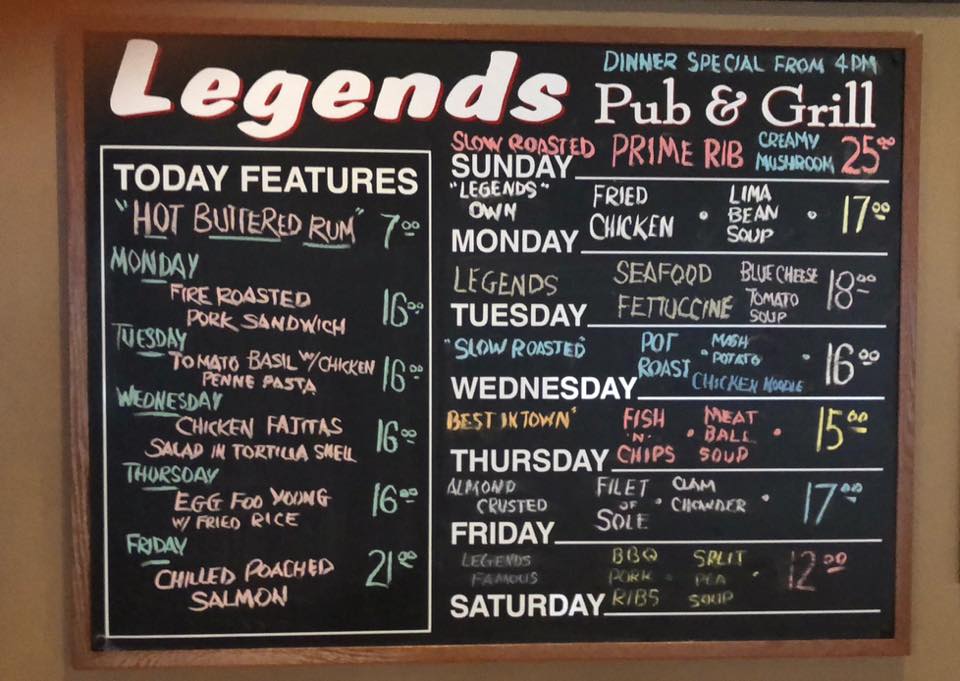 Legends
DINNER SPECIAL FROM 4PM
Pub & Grill
TODAY FEATURES
"HOT BUTTERED RUM" 7.00
MONDAY
FIRE ROASTED
PORK SANDWICH 16.00
TUESDAY
TOMATO BASIL W/CHICKEN
PENNE PASTA 16.00
WEDNESDAY
CHICKEN FAJITAS
SALAD IN TORTILLA SHELL 16.00
THURSDAY
EGG FOO YOUNG
W/ FRIED RICE 16.00
FRIDAY
CHILLED POACHED
SALMON 21.00
SLOW ROASTED PRIME RIB CREAMY MUSHROOM 25.00
SUNDAY
"LEGENDS" OWN FRIED CHICKEN • LIMA BEAN SOUP • 17.00
MONDAY
LEGENDS SEAFOOD FETTUCCINE BLUE CHEESE TOMATO SOUP 18.00
TUESDAY
"SLOW ROASTED" POT ROAST MASH • POTATO • CHICKEN NOODLE 16.00
WEDNESDAY
BEST IN TOWN" FISH 'N' CHIPS • MEAT BALL SOUP • 15.00
THURSDAY
ALMOND CRUSTED FILET OF SOLE • CLAM CHOWDER • 17.00
FRIDAY
LEGENDS FAMOUS BBQ PORK RIBS • SPLIT PEA SOUP • 12.00
SATURDAY